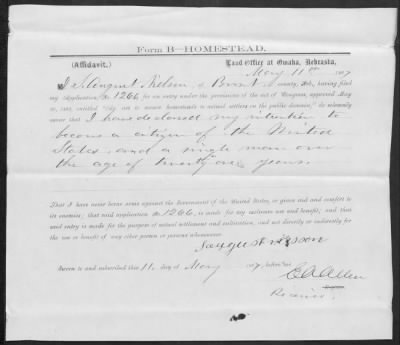 FORM B—HOMESTEAD.
(Affidavit.) Land Office at Omaha, Nebraska,
May 11th 1867
I, J. August Nelson, of Burt county, Neb., having filed
my Application, No. 1266 for an entry under the provisions of the act of Congress, approved May
20, 1862, entitled "An act to secure homesteads to actual settlers on the public domain," do solemnly
swear that I have declared my intention to
become a citizen of the United
States, and a single man over
the age of twenty one years.
That I have never borne arms against the Government of the United States, or given aid and comfort to
its enemies; that said application No. 1266, is made for my exclusive use and benefit; and that
said entry is made for the purpose of actual settlement and cultivation, and not directly or indirectly for
the use or benefit of any other person or persons whomsoever.
Sworn to and subscribed this 11 day of May 1867, before me